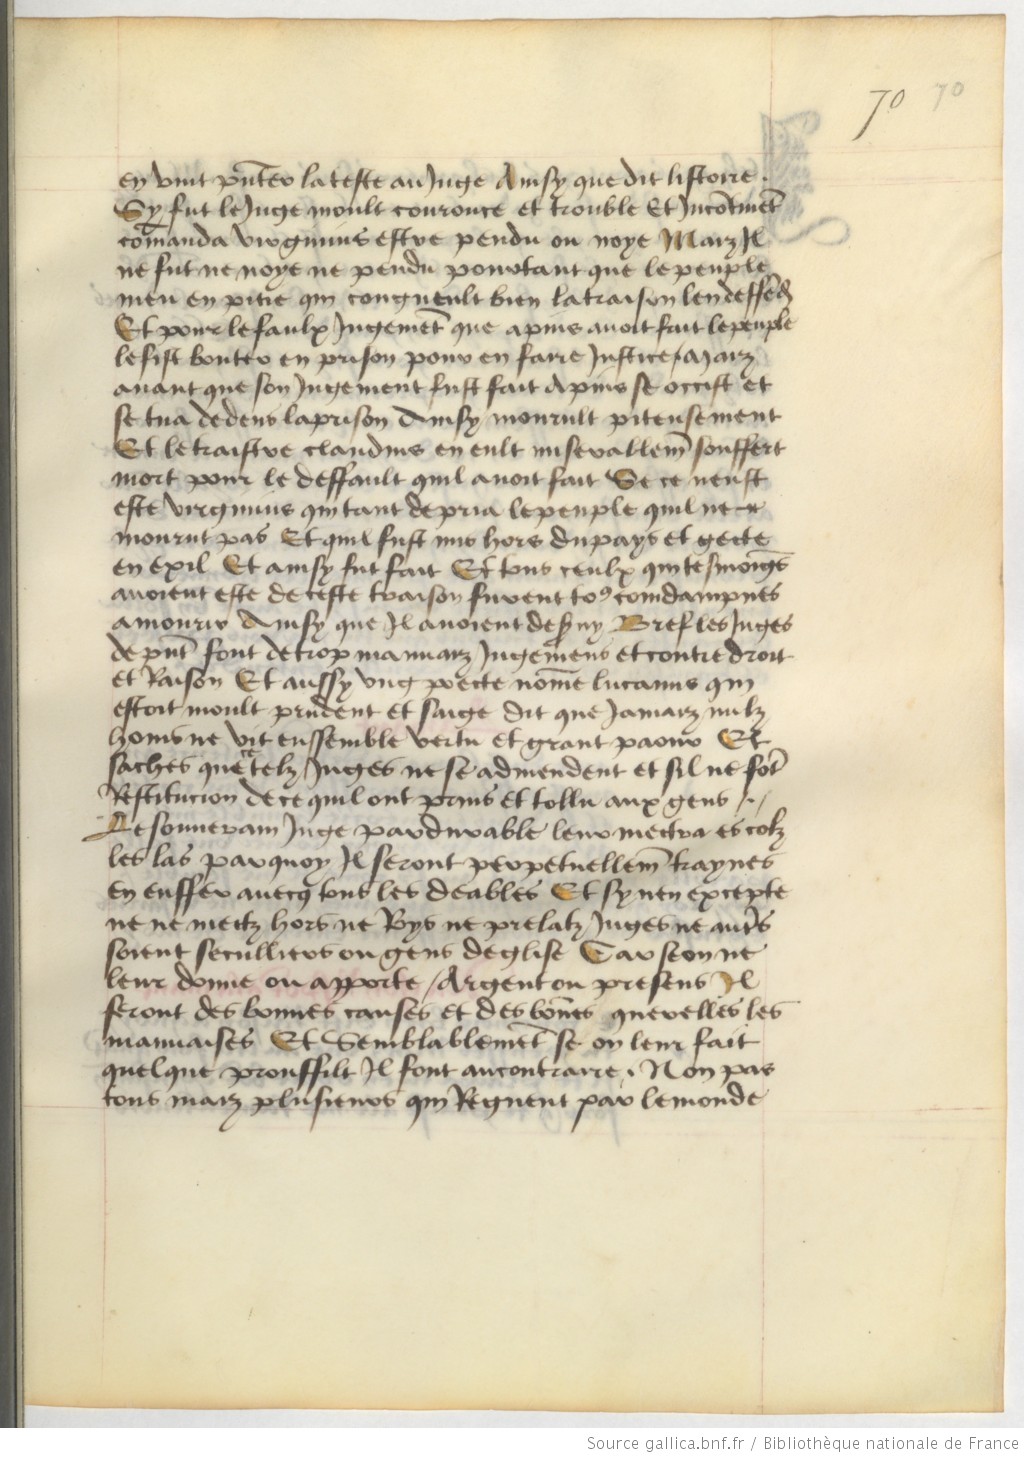 70 70
en vint pñter la teste au Juge Ainsy que dit listoire .
Sy fut le Juge moult couronce et trouble Et Jncõtinẽt
cõmanda virginius estre pendu ou noye Maiz Jl
ne fut ne noye ne pendu pourtant que le peuple
meu en pitie qui congneult bien la traison len deffẽd
Et pour le faulx Jugemẽt que apius auoit fait le peuple
le fist bouter en prison pour en faire Justice / Maiz
auant que son Jugement fust fait Apius se occist et
se tua dedens la prison Ainsy mourult piteusement
Et le traistre claudius en eult miserablem̃ souffert
mort pour le deffault quil auoit fait Se ce neust
este virginius qui tant depria le peuple quil ne
mourut pas Et quil fust mis hors du pays et gecte
en exil Et ainsy fut fait Et tous ceulx qui tesmoings
auoient este de ceste traison furent to9 comdampnes
a mourir Ainsy que Jl auoient desseruy Bref les Juges
de pñt font de trop mauuaiz Jugemens et contre droit
et Raison Et aussy vng poecte nõme lucanus qui
estoit moult prudent et saige dit que Jamaiz nulz
homs ne vit enssemble vertu et grant paour Et
saches que telz Juges ne se admendent et sil ne fõt
Restitucion de ce quil ont prins et tollu aux gens / . /
Le souuerain Juge pardurable leur mectra es colz
les las par quoy Jl seront perpetuellem̃ traynes
en enffer auecq tous les deables Et sy nen excepte
ne ne mectz hors ne Roys ne prelatz Juges ne autr̃s
soient seculliers ou gens deglise Car se on ne
leur donne ou apporte / Argent ou presens Jl
feront des bonnes causes et des bõnes querelles les
mauuaises Et Semblablemẽt se on leur fait
quelque prouffilt Jl font au contraire . Non pas
tous maiz plusieurs qui Regnent par le monde
Source gallica.bnf.fr / Bibliothèque nationale de France